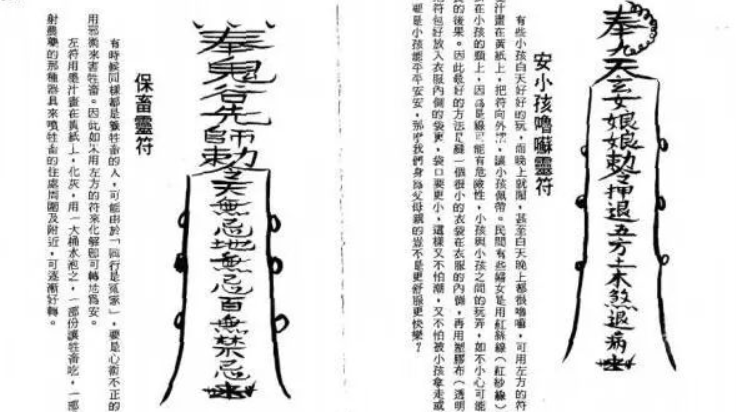 奉九天玄女娘娘勅令掃退五方土木煞退病
安小孩嚕囌靈符
有些小孩白天好好的玩，而晚上就鬧，甚至白天晚上都很嚕囌，可用左方的符
汁畫在黃紙上，把符向外摺，讓小孩佩帶。民間有些婦女是用紅絲線（紅紗線）
在小孩的頸上，因爲是線可能有危險性，小孩與小孩之間的玩弄，如不小心可能
的後果。因此最好的方法是縫一個很小的衣袋在衣服的內側，再用塑膠布（透明
符包好放入衣服內側的袋裏，袋口要更小，這樣又不怕潮，又不怕被小孩拿走或
要是小孩能平平安安，那麼我們身爲父母親的豈不是更舒服更快樂？
奉鬼谷先師勅令天無忌地無忌百無禁忌
保畜靈符
有時候同樣都是養牲畜的人，可能由於「同行是冤家」，要是心術不正的
用邪術來害牲畜。因此如果用左方的符來化解即可轉危爲安。
左符用墨汁畫在黃紙上，化灰，用一大桶水泡之，一部份讓牲畜吃，一部
射農藥的那種器具來噴牲畜的住處周圍及附近，可逐漸好轉。